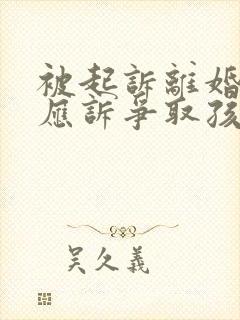 被起訴離婚
應訴爭取孩
吴久義